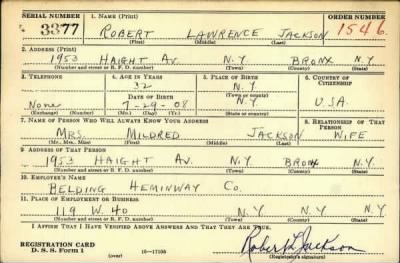 SERIAL NUMBER 1. NAME (Print) ORDER NUMBER
3377 ROBERT LAWRENCE JACKSON 1546
(First) (Middle) (Last)
2. ADDRESS (Print)
1953 HAIGHT AV. N.Y. BRONX N.Y.
(Number and street or R. F. D. number) (Town) (County) (State)
3. TELEPHONE 4. AGE IN YEARS 5. PLACE OF BIRTH 6. COUNTRY OF CITIZENSHIP
32 N.Y.
DATE OF BIRTH (Town or county)
None 7-29-08 N.Y. U.S.A.
(Exchange) (Number) (Mo.) (Day) (Yr.) (State or country)
7. NAME OF PERSON WHO WILL ALWAYS KNOW YOUR ADDRESS 8. RELATIONSHIP OF THAT PERSON
MRS. MILDRED JACKSON WIFE
(Mr., Mrs., Miss) (First) (Middle) (Last)
9. ADDRESS OF THAT PERSON
1953 HAIGHT AV. N.Y. BRONX N.Y.
(Number and street or R. F. D. number) (Town) (County) (State)
10. EMPLOYER'S NAME
BELDING HEMINWAY Co.
11. PLACE OF EMPLOYMENT OR BUSINESS
119 W. 40 N.Y. N.Y. N.Y.
(Number and street or R. F. D. number) (Town) (County) (State)
I AFFIRM THAT I HAVE VERIFIED ABOVE ANSWERS AND THAT THEY ARE TRUE.
REGISTRATION CARD
D. S. S. Form 1 16—17105 Robert L Jackson
(over) (Registrant's signature)